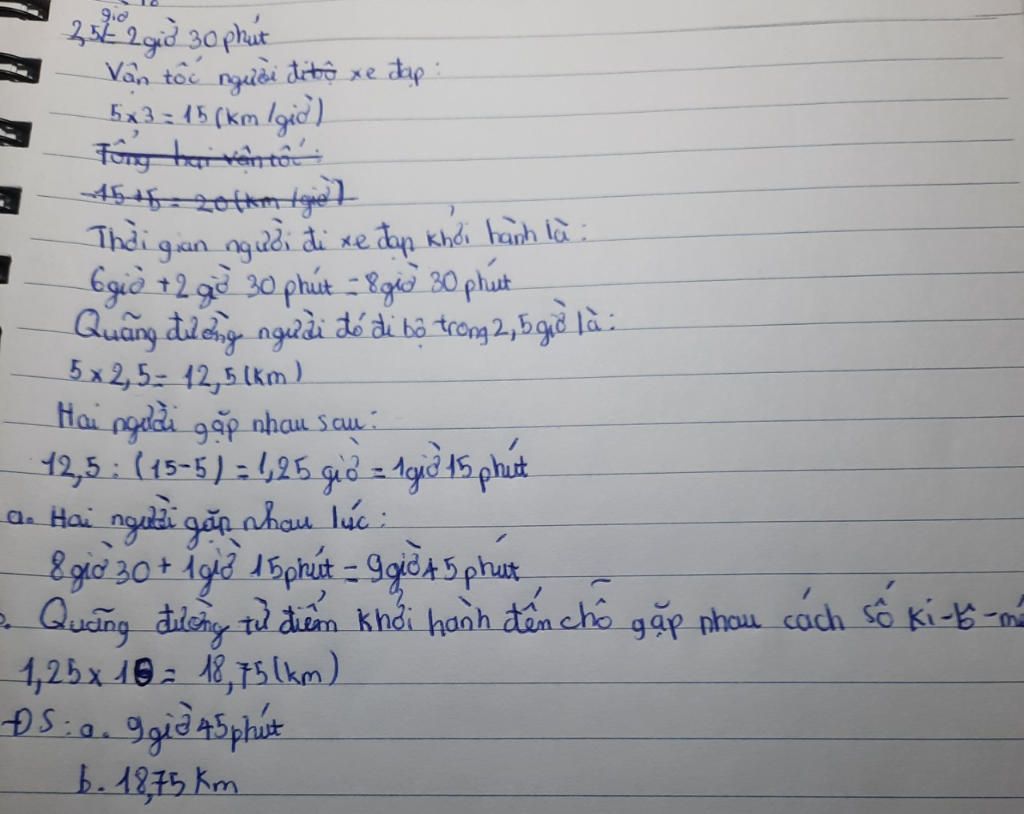 giờ
2,5 = 2 giờ 30 phút
Vận tốc người đi bộ xe đạp:
5 x 3 = 15 (km/giờ)
Tổng hai vận tốc:
15 + 5 = 20 (km/giờ)
Thời gian người đi xe đạp khởi hành là:
6 giờ + 2 giờ 30 phút = 8 giờ 30 phút
Quãng đường người đó đi bộ trong 2,5 giờ là:
5 x 2,5 = 12,5 (km)
Hai người gặp nhau sau:
12,5 : (15-5) = 1,25 giờ = 1 giờ 15 phút
a. Hai người gặp nhau lúc:
8 giờ 30 + 1 giờ 15 phút = 9 giờ 45 phút
Quãng đường từ điểm khởi hành đến chỗ gặp nhau cách số ki-lô-mé
1,25 x 15 = 18,75 (km)
ĐS: a. 9 giờ 45 phút
b. 18,75 km